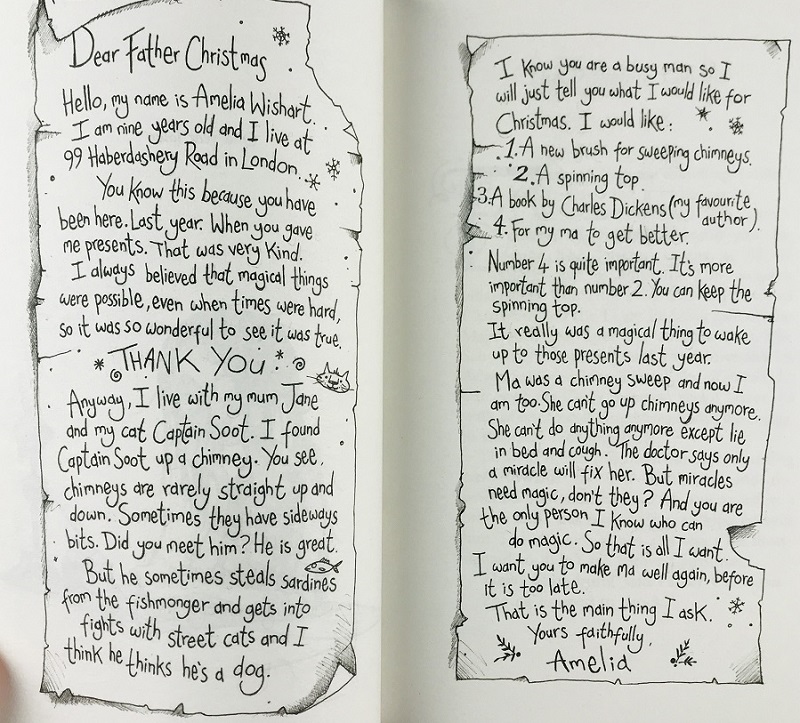 Dear Father Christmas
Hello, my name is Amelia Wishart.
I am nine years old and I live at
99 Haberdashery Road in London.
You know this because you have
been here. Last year. When you gave
me presents. That was very kind.
I always believed that magical things
were possible, even when times were hard,
so it was so wonderful to see it was true.
THANK YOU!
Anyway, I live with my mum Jane
and my cat Captain Soot. I found
Captain Soot up a chimney. You see,
chimneys are rarely straight up and
down. Sometimes they have sideways
bits. Did you meet him? He is great.
But he sometimes steals sardines
from the fishmonger and gets into
fights with street cats and I
think he thinks he's a dog.
I know you are a busy man so I
will just tell you what I would like for
Christmas. I would like:
1. A new brush for sweeping chimneys.
2. A spinning top.
3. A book by Charles Dickens (my favourite
author).
4. For my ma to get better.
Number 4 is quite important. It's more
important than number 2. You can keep the
spinning top.
It really was a magical thing to wake
up to those presents last year.
Ma was a chimney sweep and now I
am too. She can't go up chimneys anymore.
She can't do anything anymore except lie
in bed and cough. The doctor says only
a miracle will fix her. But miracles
need magic, don't they? And you are
the only person I know who can
do magic. So that is all I want.
I want you to make Ma well again, before
it is too late.
That is the main thing I ask.
Yours faithfully,
Amelia